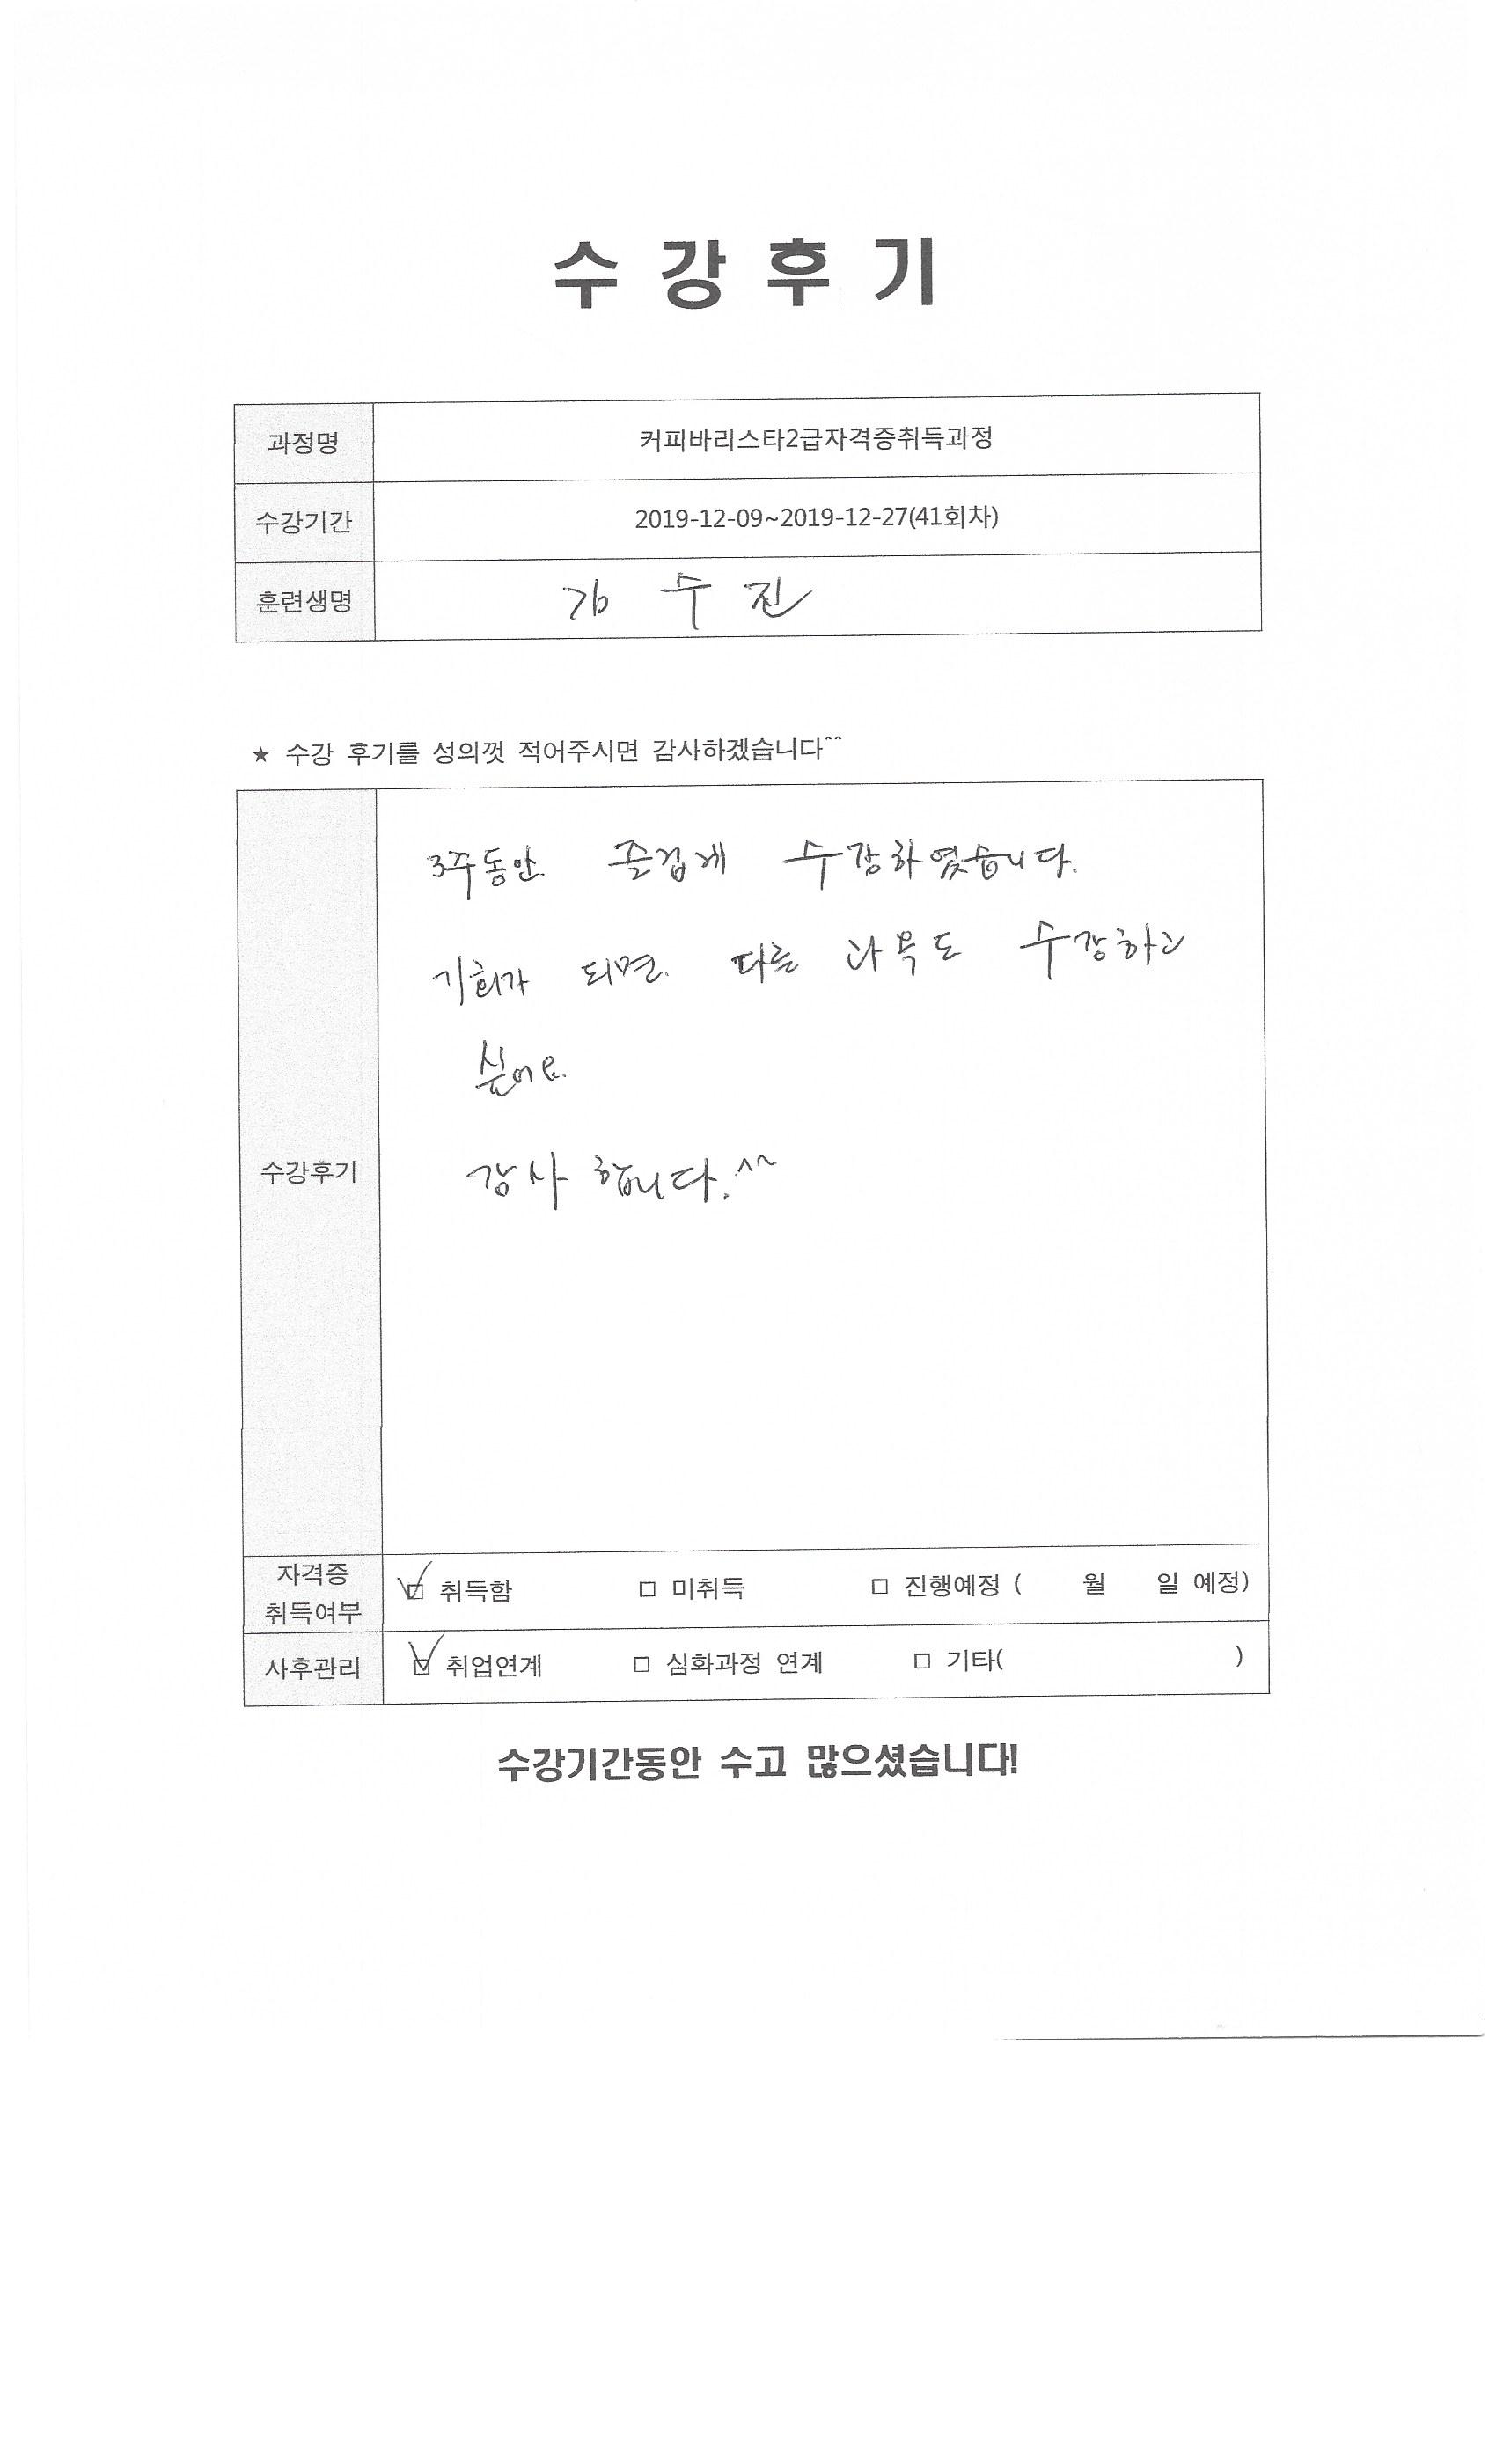 수강후기
과정명 커피바리스타2급자격증취득과정
수강기간 2019-12-09~2019-12-27(41회차)
훈련생명 김수진
★ 수강 후기를 성의껏 적어주시면 감사하겠습니다^^
3주동안 즐겁게 수강하였습니다.
기회가 되면 다른 과목도 수강하고
싶어요.
수강후기
감사합니다.^^
자격증
취득여부
☑ 취득함 □ 미취득 □ 진행예정 ( 월 일 예정)
사후관리 ☑ 취업연계 □ 심화과정 연계 □ 기타( )
수강기간동안 수고 많으셨습니다!